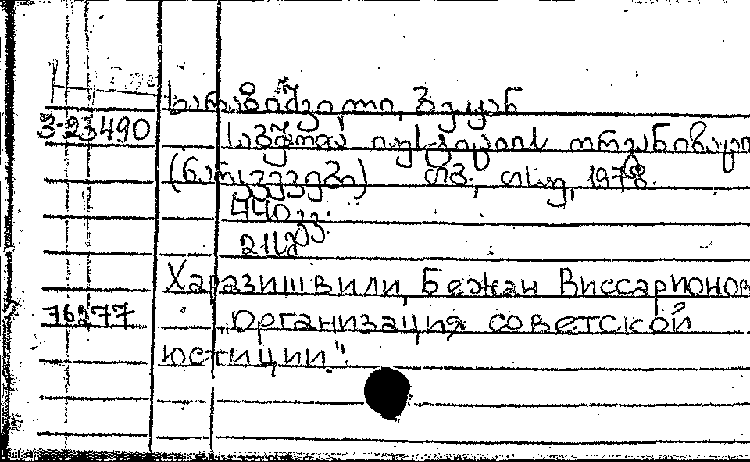 ხარაზიშვილი, ბეჟან
3-23490 საბჭოთა იუსტიციის ორგანიზაცია
(ნარკვევები) თბ., თსუ, 1978.
440 გვ.
Харазишвили, Бежан Виссарионов
76277 "Организация советской
юстиции".